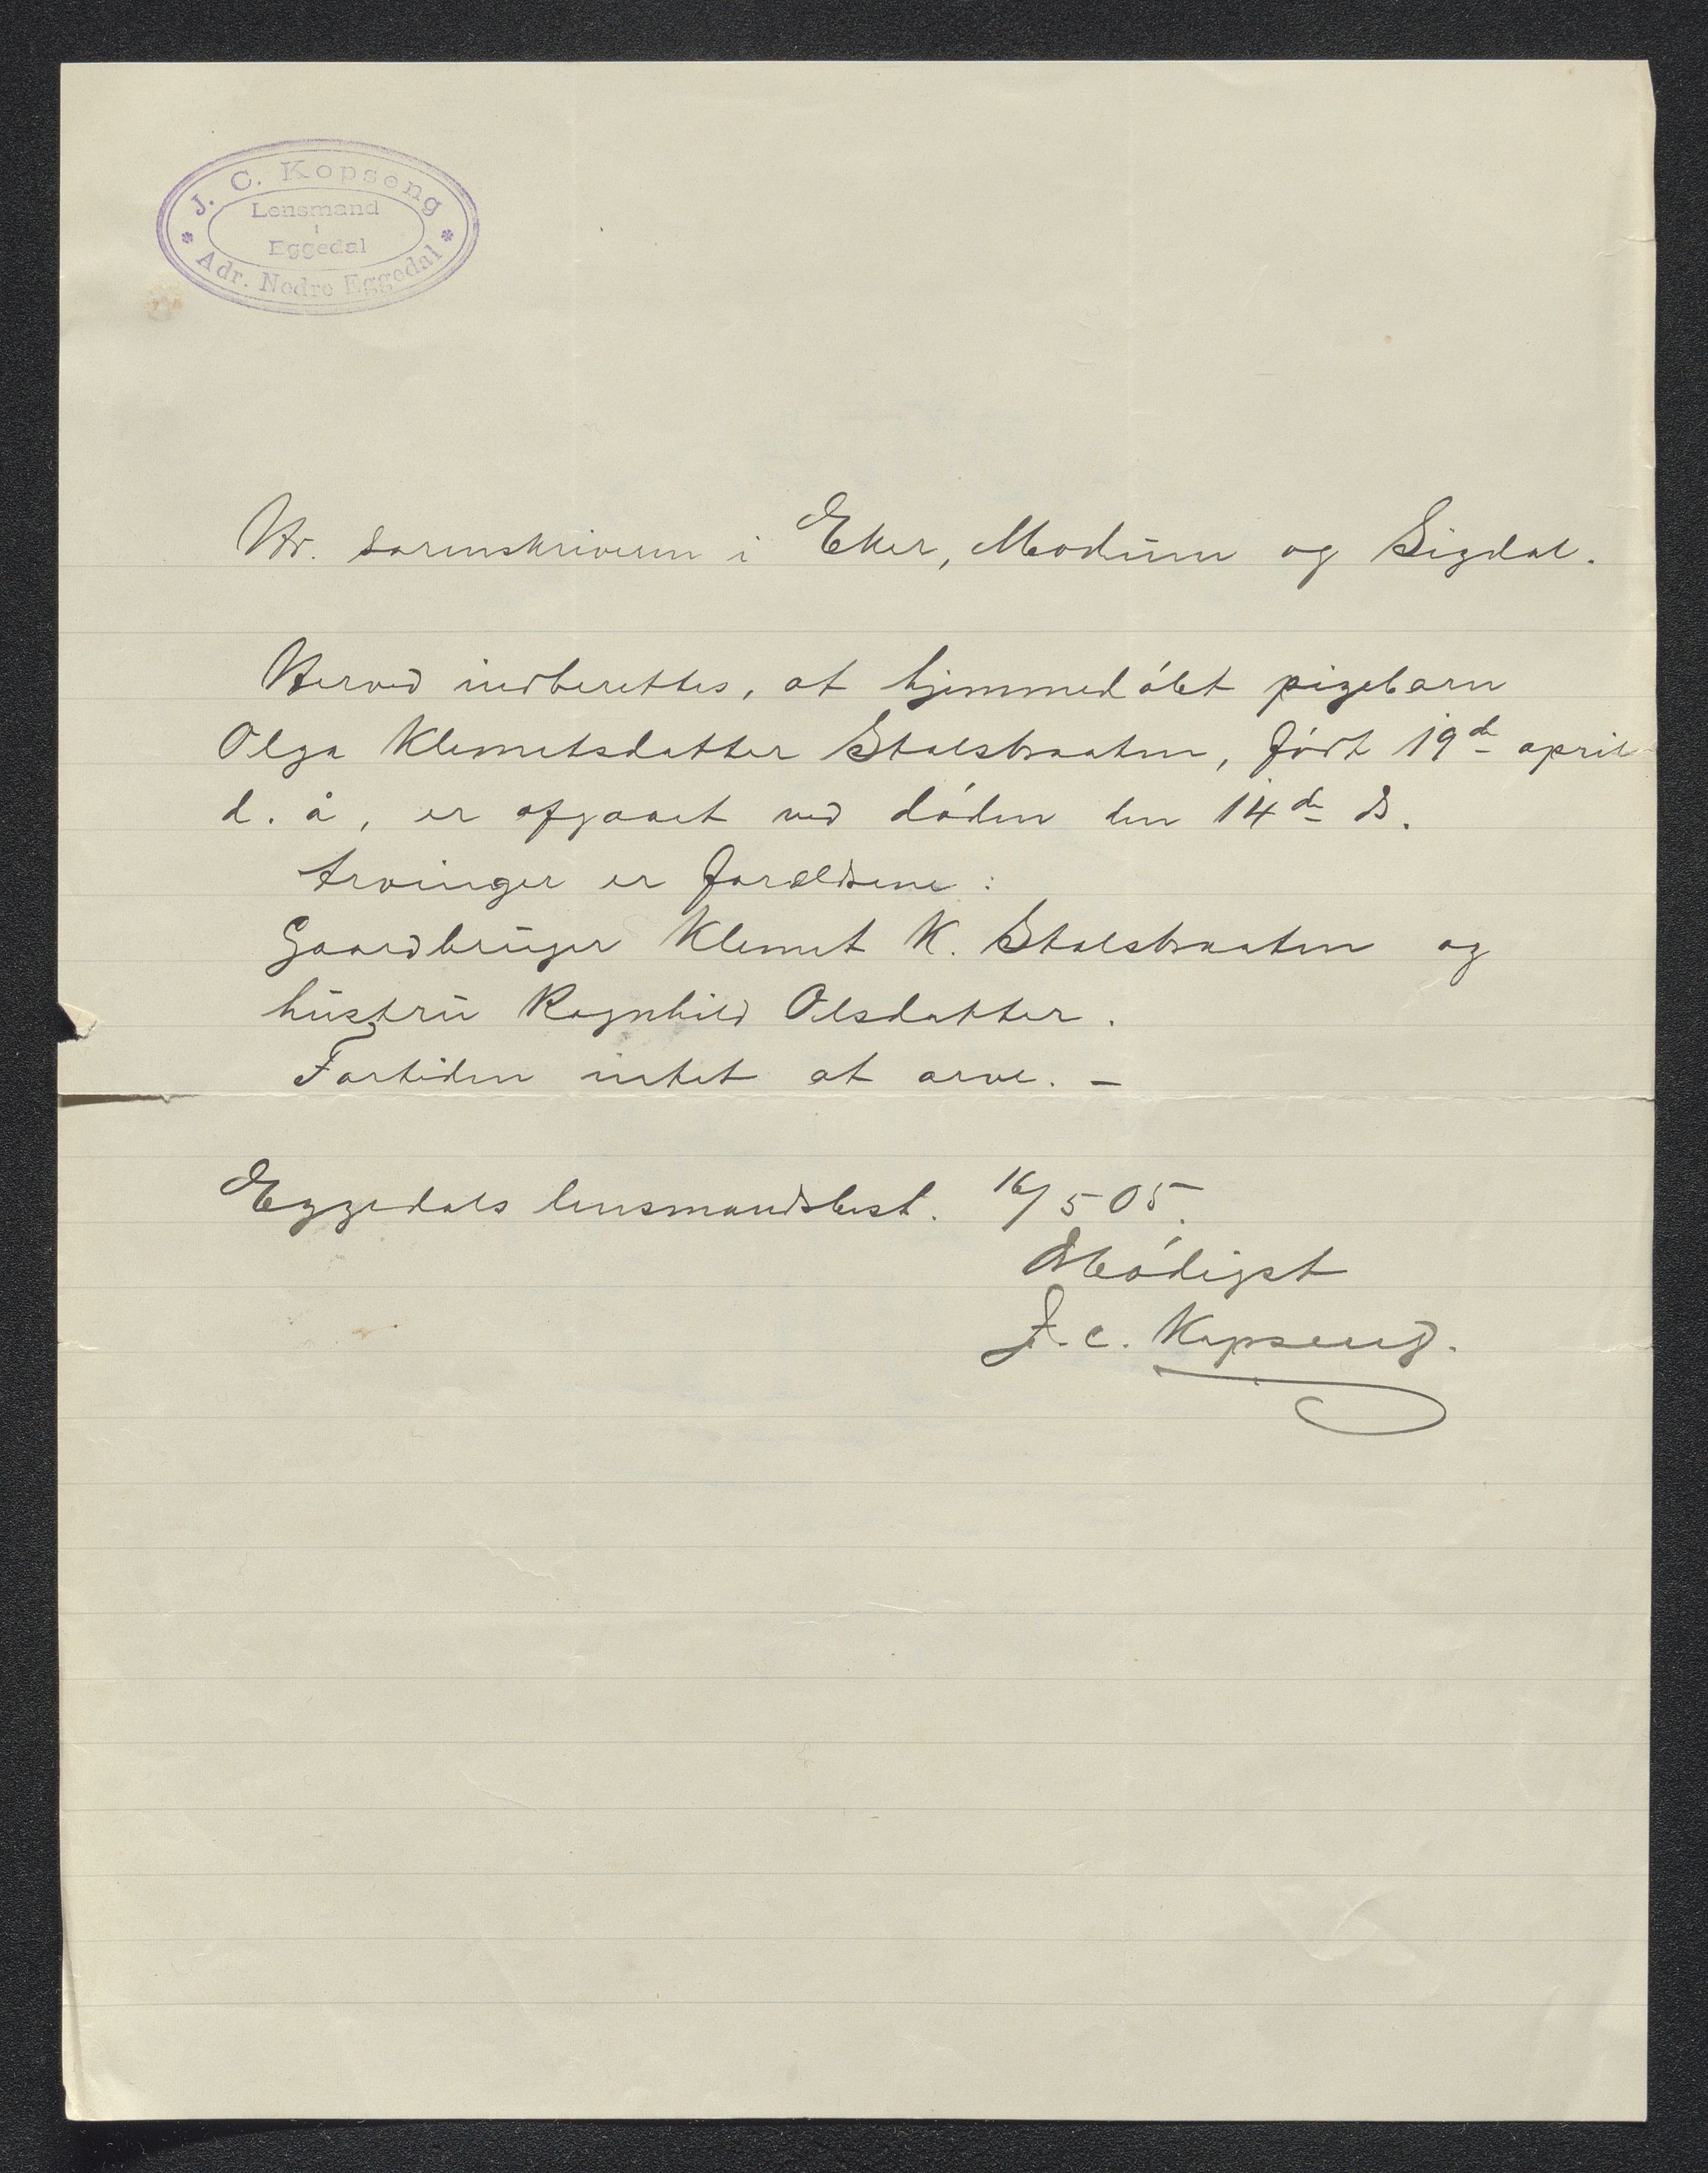 J. C. Kopseng
Lensmand
i
Eggedal
Adr. Nedre Eggedal
Hr. sorenskriveren i Eker, Modum og Sigdal.
Herved indberettes, at hjemmedøbt pigebarn
Olga Klemetsdatter Stalsbraaten, født 19de april
d. å, er afgaaet ved døden den 14de ds.
Arvinger er forældrene:
Gaardbruger Klemet K. Stalsbraaten og
hustru Ragnhild Olsdatter.
Fortiden intet at arve. –
Eggedals lensmandsbest. 16/5 05.
Ærbødigst
J. C. Kopseng.